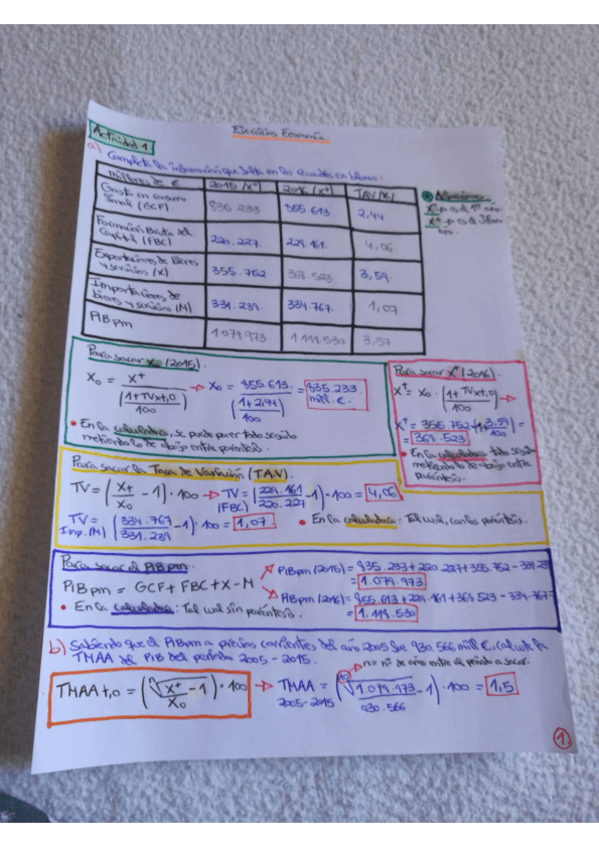 Ejercicios Economía.
Actividad 1
a) Completa la información que falta en los cuadros en blanco:
millones de € 2015 (X⁰) 2016 (Xᵗ) TAV(%)
Gasto en consumo final (GCF) 835.233 855.613 2,44
Formación Bruta de Capital (FBC) 220.227. 229.161. 4,06.
Exportaciones de bienes y servicios (X) 355.752 368.523. 3,59.
Importaciones de bienes y servicios (M) 331.239. 334.767. 1,07
PIB pm 1079.973 1.118.530 3,57
X⁰ → es el 1º año
Xᵗ → es el
año.
Para sacar X₀ (2015).
X₀ = Xᵗ / (1+TVxt,0)/100 → X₀ = 855.613. / (1+2,44)/100 = 835.233 mill. €.
• En la calculadora, se puede poner todo seguido
metiendo lo de abajo entre paréntesis.
Para sacar Xᵗ (2016).
Xᵗ = X₀ · (1+TVxt,0)/100 →
Xᵗ = 355.752 · (1+3,59/100) =
= 368.523
• En la calculadora todo seguido
metiendo lo de abajo entre
paréntesis.
Para sacar la Tasa de Variación (TAV)
TV = (Xt/X₀ - 1) · 100 → TV (FBC) = (229.161/220.227 - 1) · 100 = 4,06
TV Imp.(M) = (334.767/331.239 - 1) · 100 = 1,07
• En la calculadora: Tal cual, con los paréntesis.
Para sacar el PIB pm
PIB pm = GCF + FBC + X - M
PIB pm (2015) = 835.233+220.227+355.752-331.239
= 1.079.973
PIB pm (2016) = 855.613+229.161+368.523-334.767
= 1.118.530
• En la calculadora: Tal cual sin paréntesis.
b) Sabiendo que el PIBpm a precios corrientes del año 2005 fue 930.566 mill €, calcula la
TMAA del PIB del período 2005 - 2015.
n = nº de años entre el período a sacar.
TMAA t,0 = (ⁿ√(Xᵗ/X₀) - 1) · 100 → TMAA 2005-2015 = (√(1.079.973/930.566) - 1) · 100 = 1,5
1.